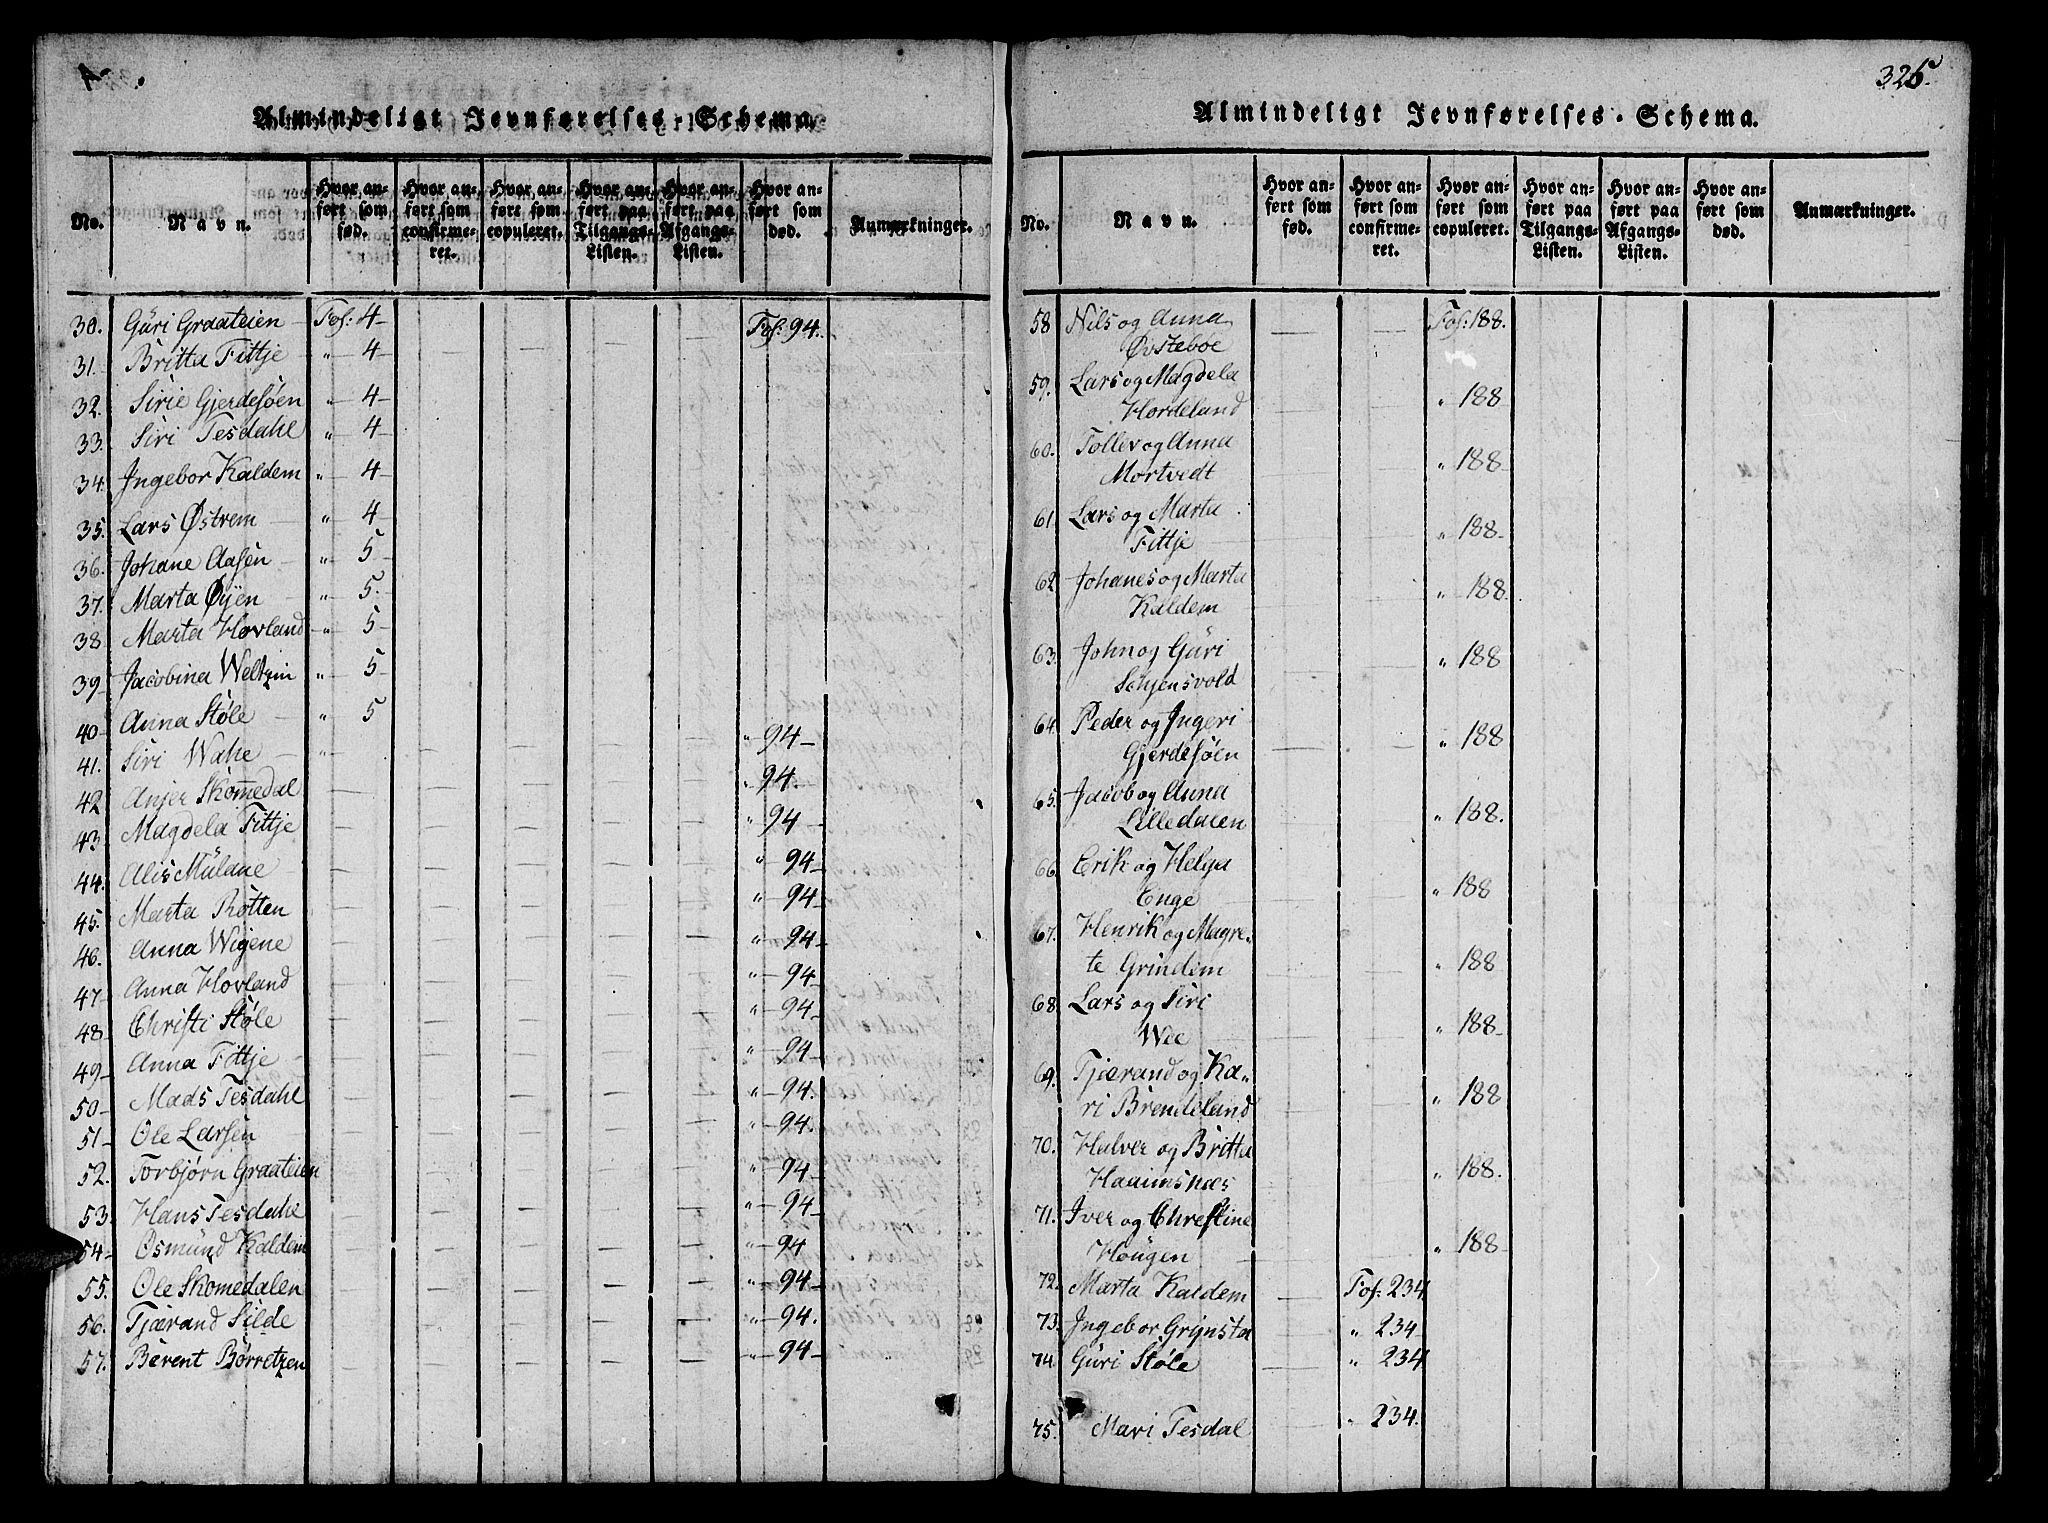 Almindeligt Jevnførelses-Schema.
No. Navn. Hvor anført som fød. Hvor anført som confirmeret. Hvor anført som copuleret. Hvor anført paa Tilgangs-Listen. Hvor anført paa Afgangs-Listen. Hvor anført som død. Anmærkninger.
30. Guri Graateien Fol: 4 Fol: 94.
31. Britta Fittje " 4
32. Sirie Gjerdesøen " 4
33. Siri Tesdahl " 4
34. Ingebor Kaldem " 4
35. Lars Østrem " 4
36. Johane Aasen " 5
37. Marta Øyen " 5
38 Marta Hovland " 5
39 Jacobina Weltzin " 5
40 Anna Støle " 5
41. Siri Wahe " " 94
42 Anjer Skomedal " 94
43 Magdela Fittje " 94
44. Alis Mulane " 94
45. Marta Rotten " 94
46. Anna Wigene " 94
47 Anna Hovland " 94
48 Christi Støle " 94
49 Anna Fittje " 94
50 Mads Tesdahl " 94.
51 Ole Larsen " 94.
52. Torbjørn Graateien " 94
53. Hans Tesdahl " 94
54 Osmund Kaldem " 94
55. Ole Skomedalen " 94
56. Tjærand Silde " 94.
57. Berent Børretzen " 94
325.
Almindeligt Jevnførelses-Schema.
No. Navn. Hvor anført som fød. Hvor anført som confirmeret. Hvor anført som copuleret. Hvor anført paa Tilgangs-Listen. Hvor anført paa Afgangs-Listen. Hvor anført som død. Anmærkninger.
58 Nils og Anna Fol: 188.
Østeboe
59. Lars og Magdela
Hordeland " 188
60. Tollev og Anna
Mortvedt " 188
61 Lars og Marta
Fittje " 188
62 Johanes og Marta
Kaldem " 188
63. John og Guri
Schjensvold " 188
64. Peder og Ingeri
Gjerdesøen " 188
65. Jacob og Anna
Lilledalen " 188.
66. Erik og Helga
Enge " 188
67. Henrik og Magre-
te Grindem " 188
68. Lars og Siri
Wee " 188
69. Tjærand og Ka-
ri Brendeland " 188
70. Halver og Britta
Haaimsnæs " 188.
71. Iver og Christine
Hougen " 188
72. Marta Kaldem Fol: 234
73. Ingebor Grynsta " 234
74 Guri Støle " 234
75. Mari Tesdal " 234.